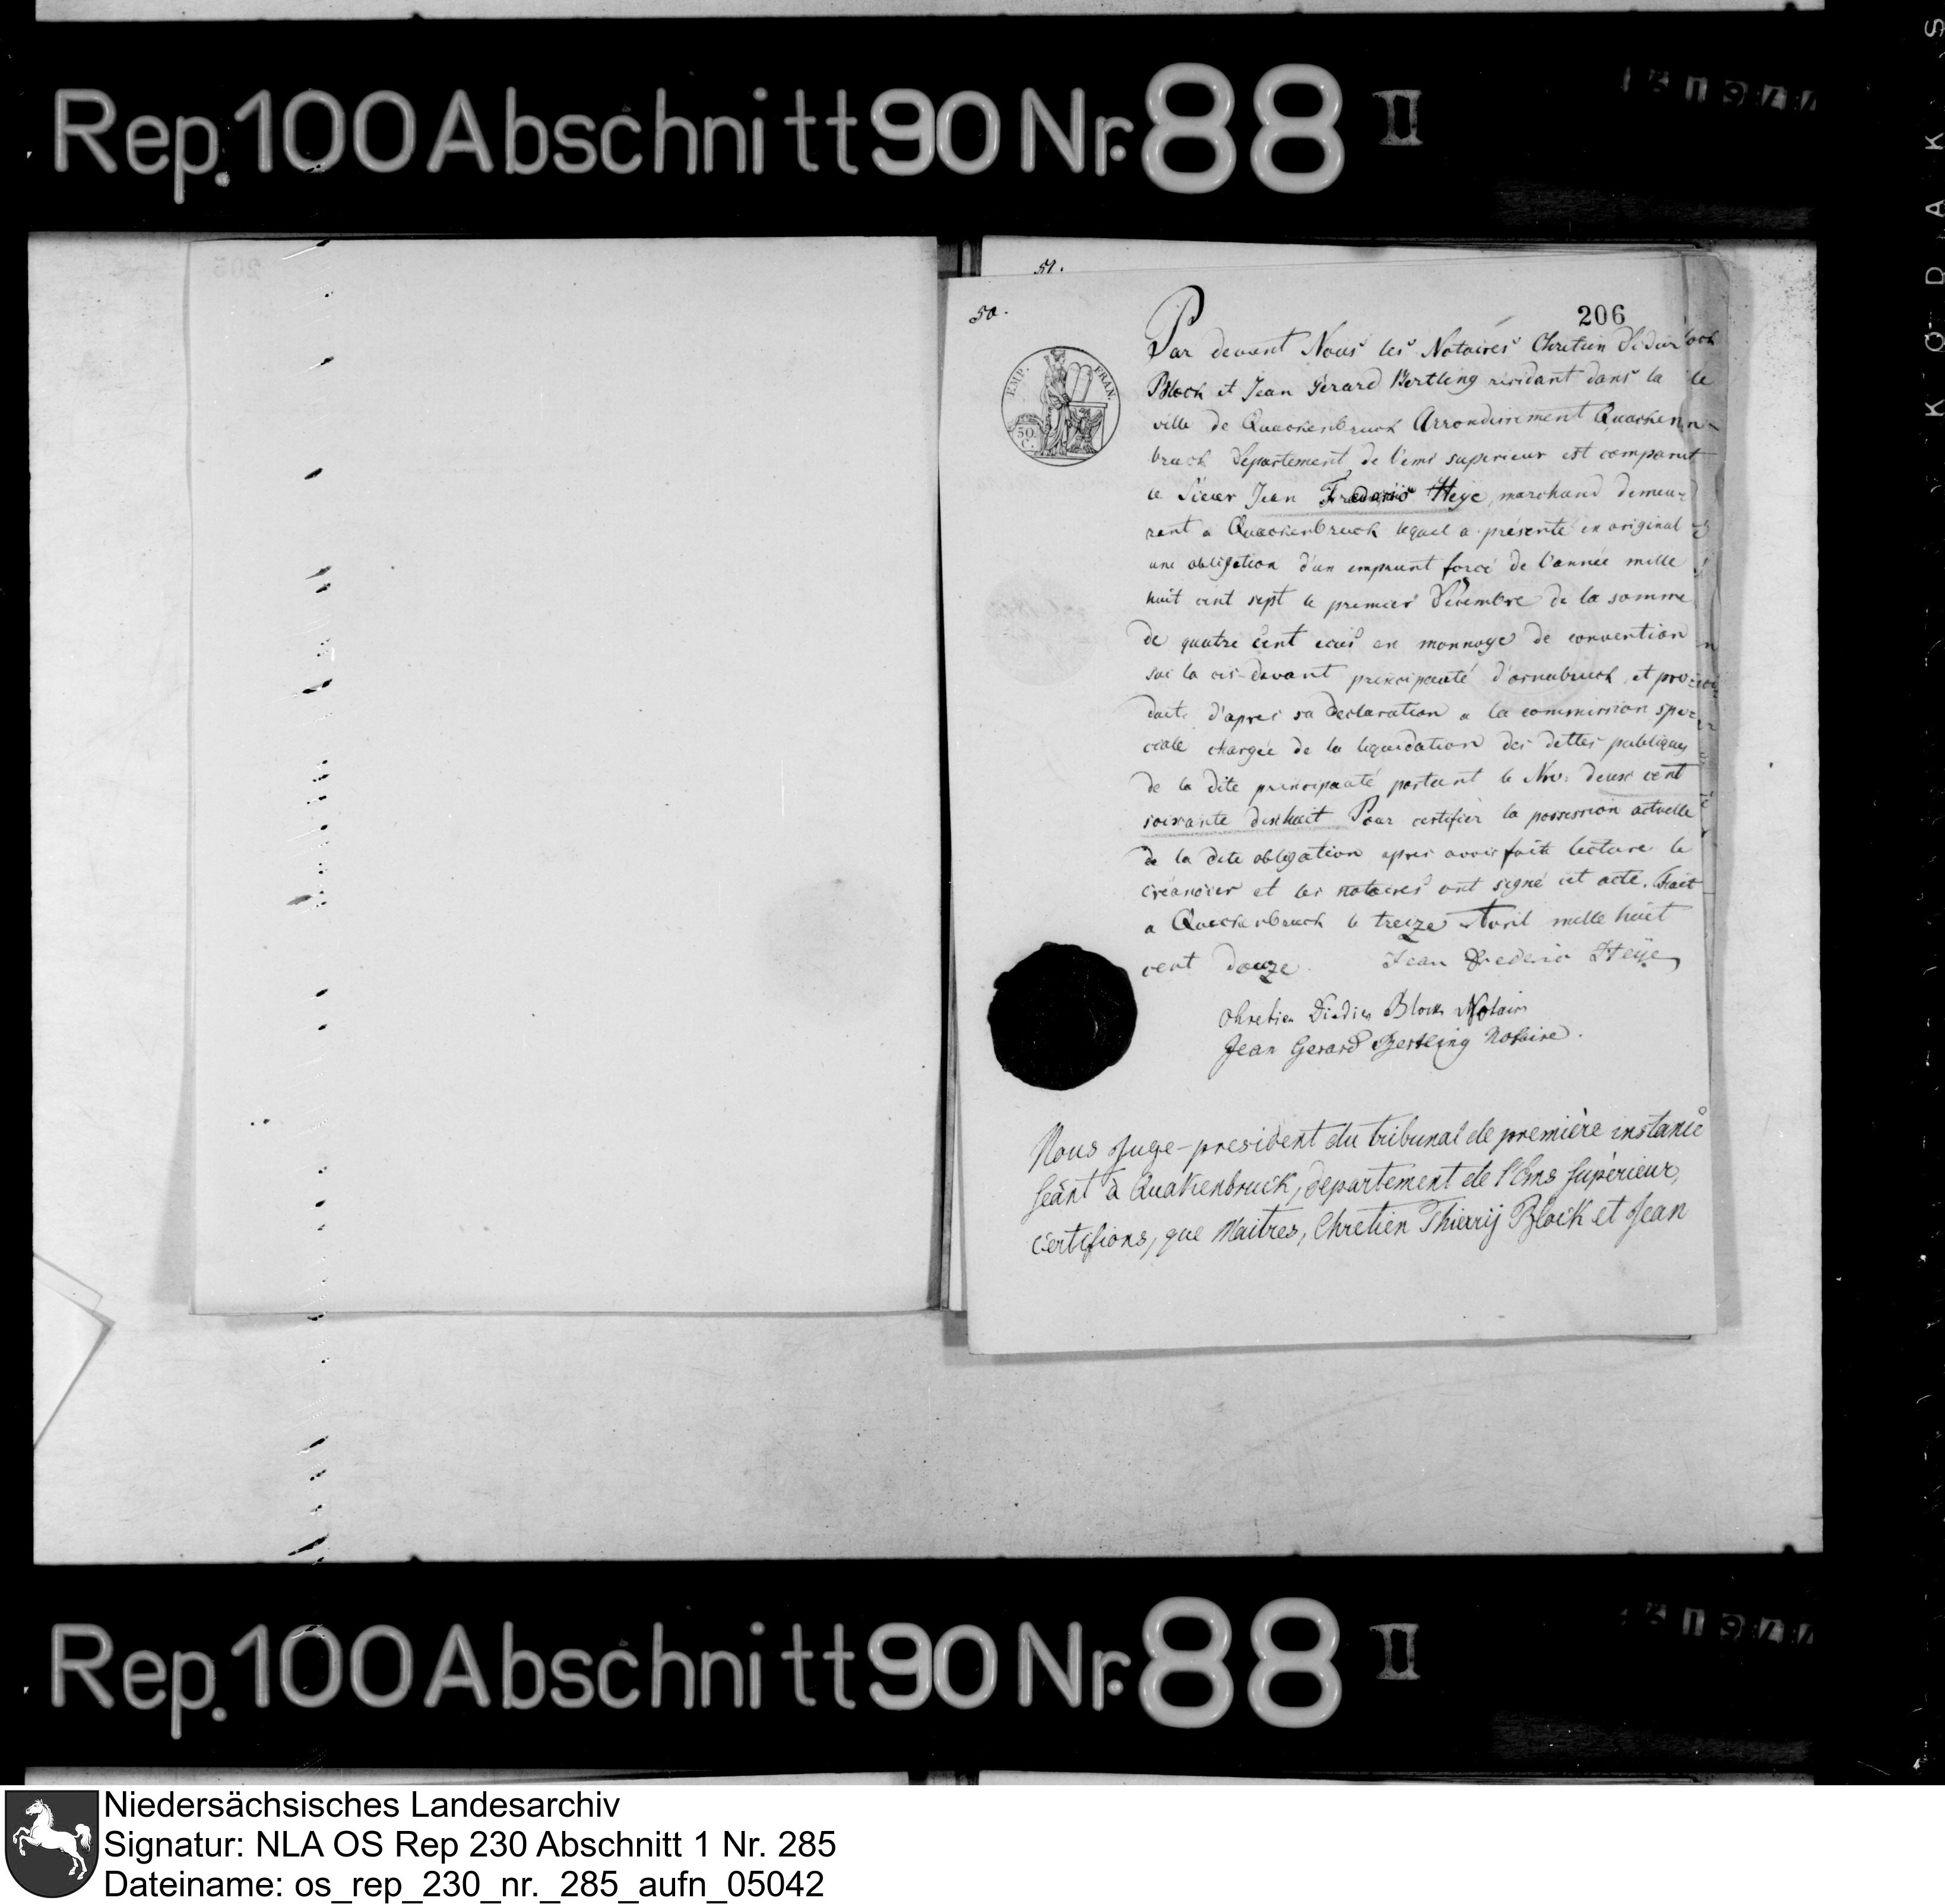 Rep. 100 Abschnitt 90 Nr. 88 II
51.
50.
206
EMP. FRAN.
50. C.
Par devant Nous les Notaires Chretien Didier
Block et Jean Gerard Bertling residant dans la
ville de Quackenbruck Arrondissement Quacken
bruck Departement de l'ems superieur est comparut
le Sieur Jean Frederic Heye, marchand demeu-
rant a Quackenbruck lequel a presenté en original
une obligation d'un emprunt forcé de l'année mille
huit cent sept le premier Decembre de la somme
de quatre cent ecus en monnoye de convention
sur la cis-devant principauté d'osnabruck et pro-
duite d'apres sa declaration a la commission spe-
ciale chargée de la liquidation des dettes publiques
de la dite principauté portant le Nro. deux cent
soixante dixhuit Pour certifier la possession actuelle
de la dite obligation apres avoir faite lecture le
créancier et les notaires ont signé cet acte. Fait
a Quackenbruck le treize Avril mille huit
cent douze. Jean Frederic Heye
Chretien Didier Block Notaire
Jean Gerard Bertling Notaire.
Nous Juge-president du tribunal de première instance
séant à Quakenbruck, departement de l'Ems Supérieur,
certifions, que Maitres, Chretien Thierrij Block et Jean
Rep. 100 Abschnitt 90 Nr. 88 II
KODAK S
Niedersächsisches Landesarchiv
Signatur: NLA OS Rep 230 Abschnitt 1 Nr. 285
Dateiname: os_rep_230_nr._285_aufn_05042